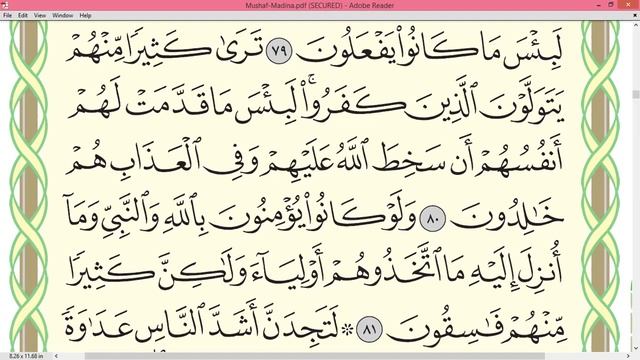 Mushaf-Madina.pdf (SECURED) - Adobe Reader
File Edit View Window Help
لَبِئۡسَ مَا كَانُواْ يَفۡعَلُونَ ٧٩ تَرَىٰ كَثِيرٗا مِّنۡهُمۡ
يَتَوَلَّوۡنَ ٱلَّذِينَ كَفَرُواْۚ لَبِئۡسَ مَا قَدَّمَتۡ لَهُمۡ
أَنفُسُهُمۡ أَن سَخِطَ ٱللَّهُ عَلَيۡهِمۡ وَفِي ٱلۡعَذَابِ هُمۡ
خَٰلِدُونَ ٨٠ وَلَوۡ كَانُواْ يُؤۡمِنُونَ بِٱللَّهِ وَٱلنَّبِيِّ وَمَآ
أُنزِلَ إِلَيۡهِ مَا ٱتَّخَذُوهُمۡ أَوۡلِيَآءَ وَلَٰكِنَّ كَثِيرٗا
مِّنۡهُمۡ فَٰسِقُونَ ٨١ ۞لَتَجِدَنَّ أَشَدَّ ٱلنَّاسِ عَدَٰوَةٗ
8.26 x 11.68 in